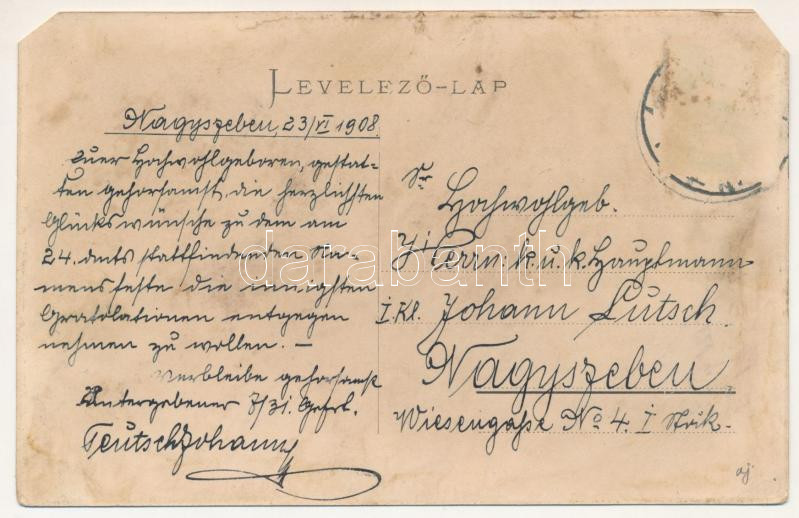 LEVELEZŐ-LAP
Nagyszeben, 23/VI 1908
Euer Hochwohlgeboren, gestat-
ten gehorsamst, die herzlichsten
Glückswünsche zu dem am
24. dmts stattfindenden Na-
mensfeste die innigsten
Gratolationen entgegen
nehmen zu wollen. —
verbleibe gehorsamst
Untergebener 8/31. Gefrt.
Teutsch Johann
Sr
Hochwohlgeb.
Herrn: k. u. k. Hauptmann
I. Kl. Johann Lutsch
Nagyszeben
Wiesengaße No 4. I Stock.
darabanth
aj